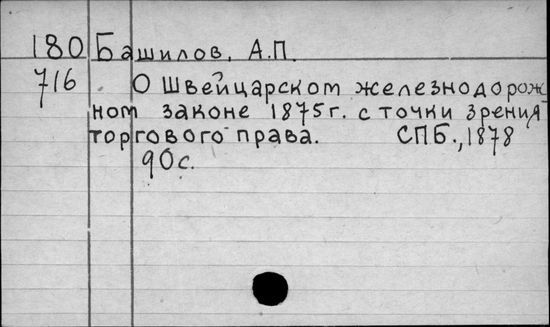 180 Башилов, А.П.
716 О Швейцарском железнодорож-
ном законе 1875г. с точки зрения
торгового права. СПБ., 1878
90с.